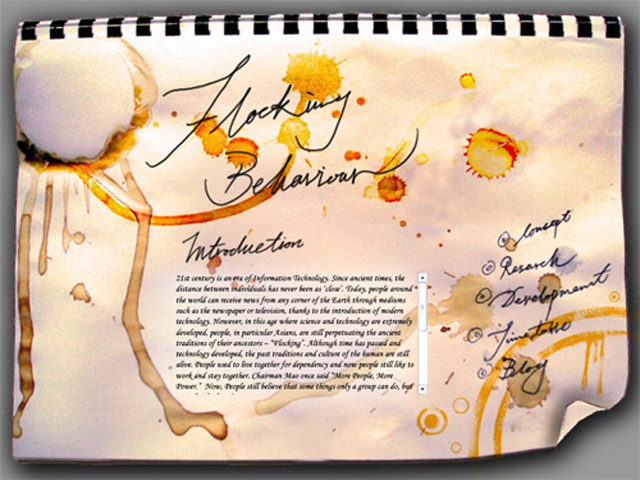 Flocking
Behaviour
Introduction
21st century is an era of Information Technology. Since ancient times, the
distance between individuals has never been as 'close'. Today, people around
the world can receive news from any corner of the Earth through mediums
such as the newspaper or television, thanks to the introduction of modern
technology. However, in this age where science and technology are extremely
developed, people, in particular Asians, are still perpetuating the ancient
traditions of their ancestors – "Flocking". Although time has passed and
technology developed, the past traditions and culture of the human are still
alive. People used to live together for dependency and now people still like to
work and stay together. Chairman Mao once said "More People, More
Power." Now, People still believe that some things only a group can do, but
Concept
Research
Development
Timetable
Blog